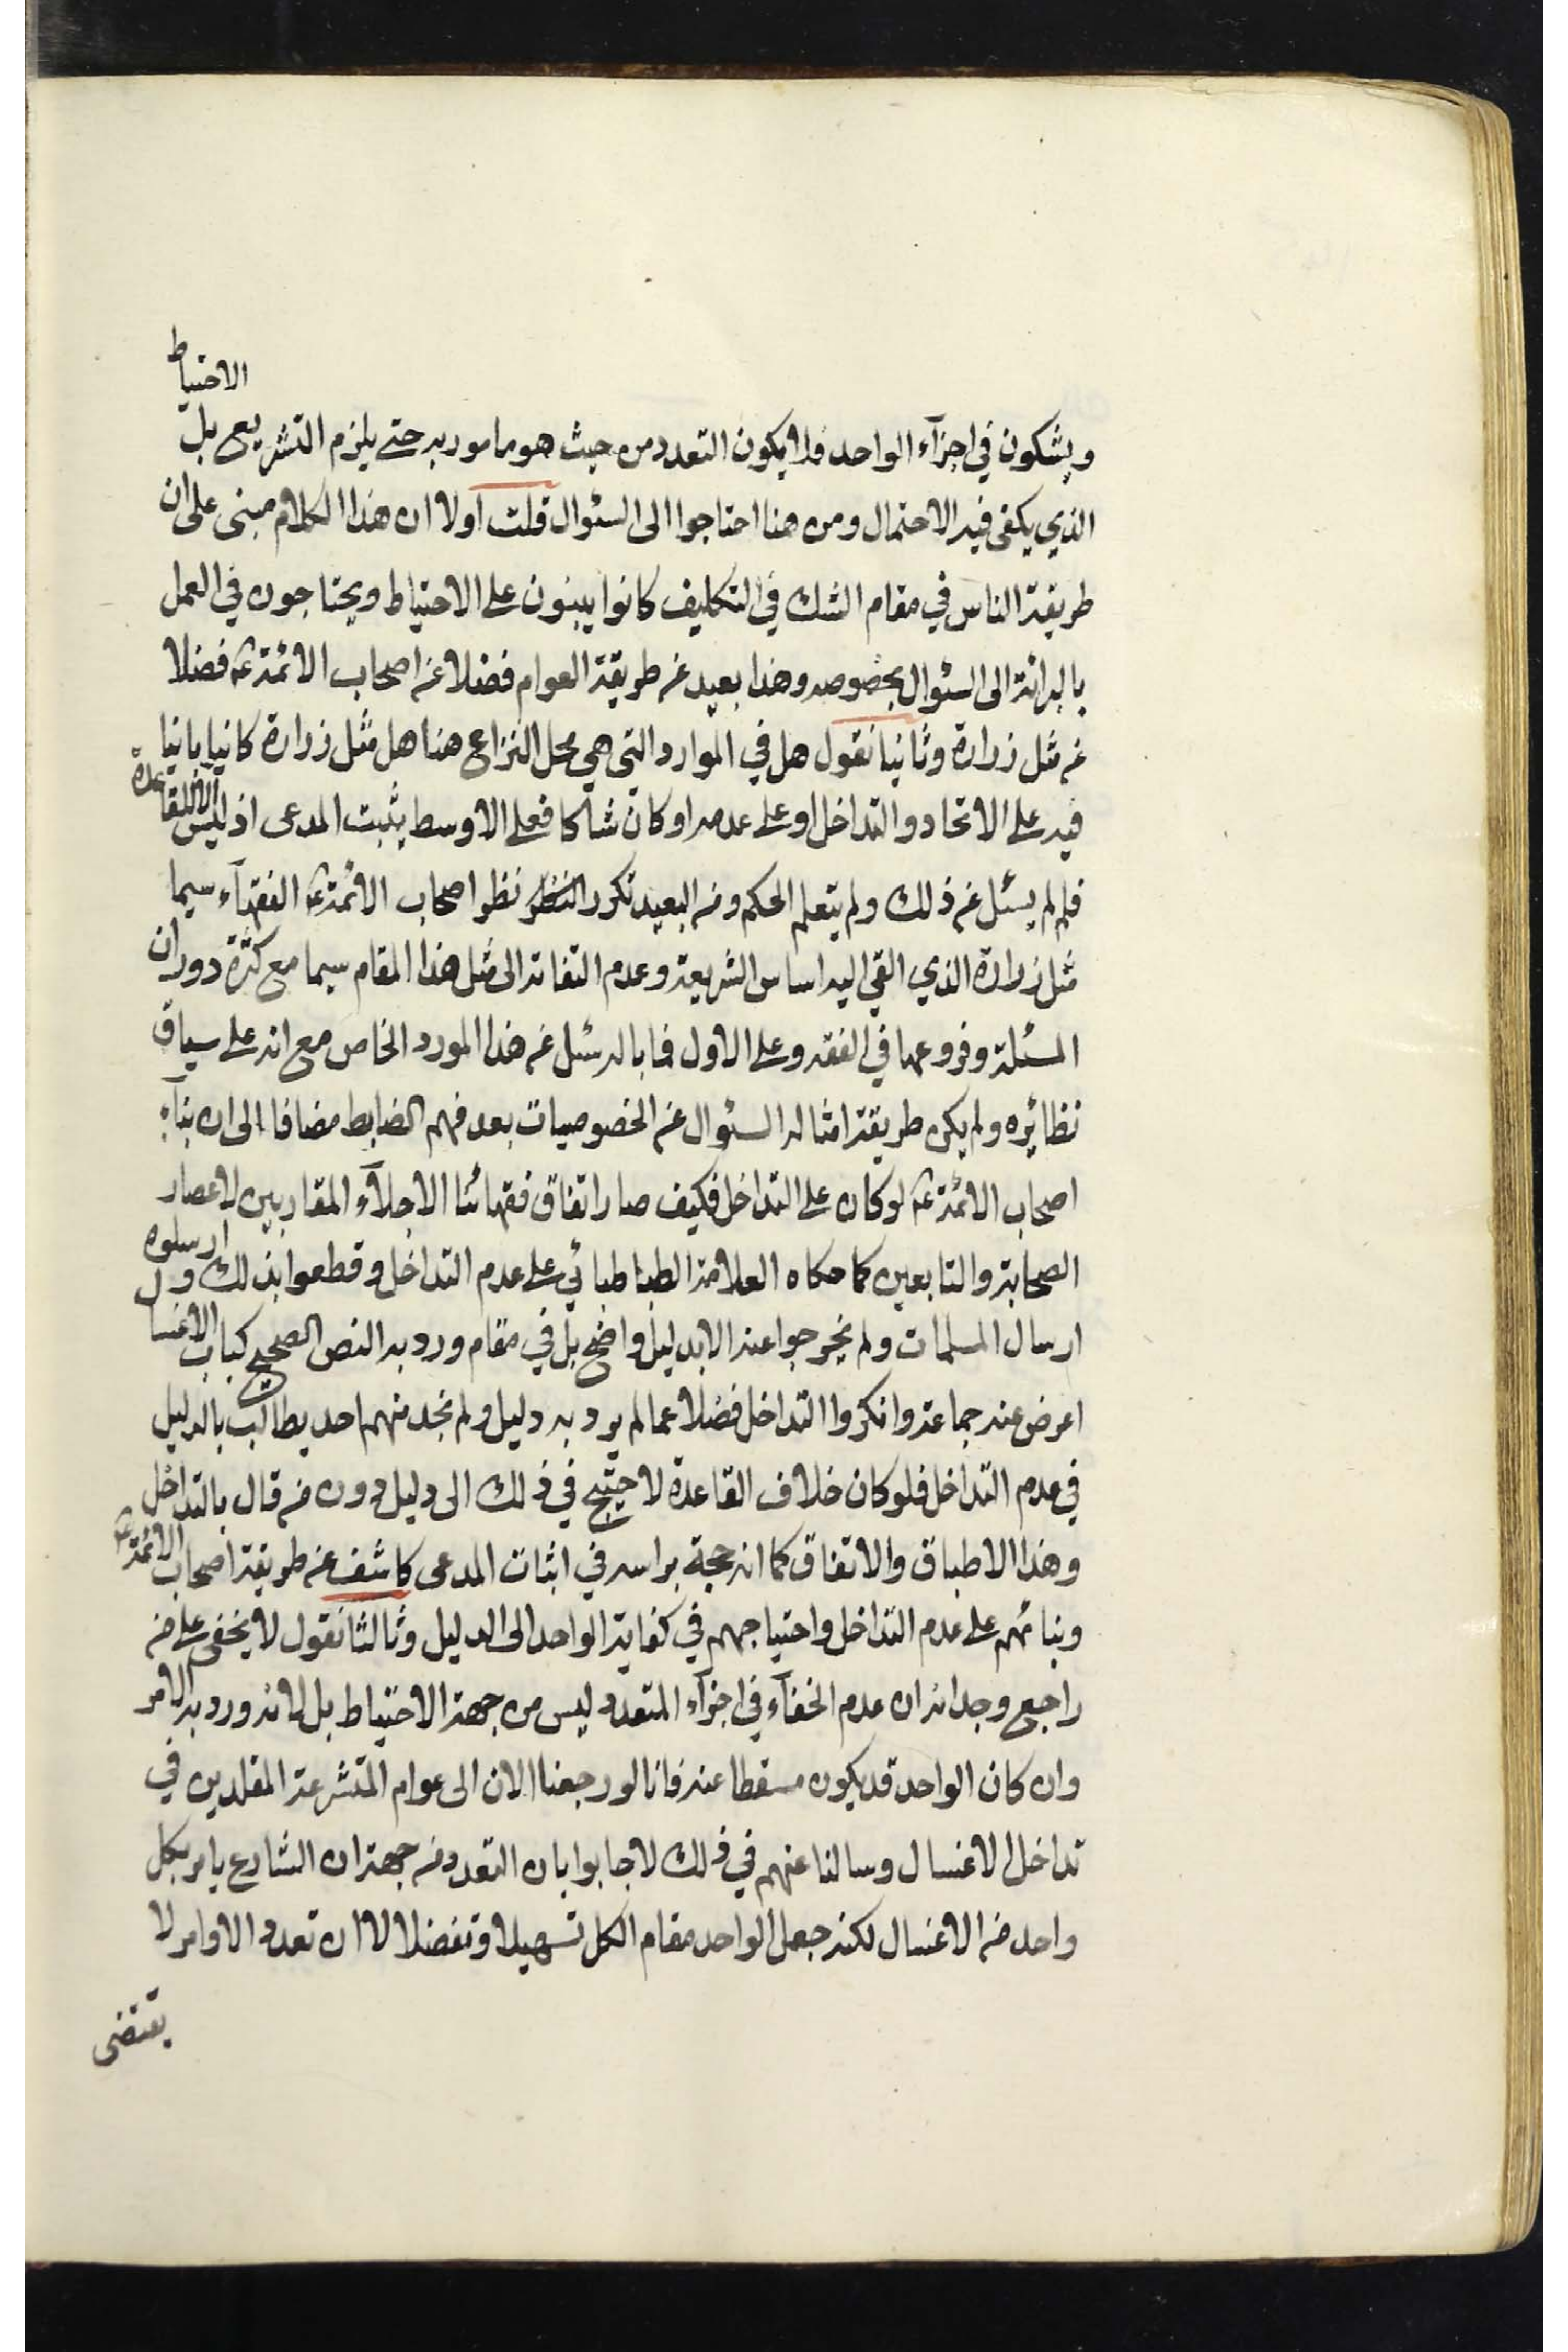 ويشكون في اجزآء الواحد فلا يكون التعدد من حيث هو مامور به حتى يلزم التشريع بل الاحتياط
الذي يكفى فيه الاحتمال ومن هنا احتاجوا الى السئوال قلت اولا ان هذا الكلام مبنى على ان
طريقة الناس في مقام الشك في التكليف كانوا يبنون على الاحتياط ويحتاجون في العمل
بالبرائة الى السئوال بخصوصه وهذا بعيد عن طريقة العوام فضلا عن اصحاب الائمة ع فضلا
عن مثل زرارة وثانيا نقول هل في الموارد التي هي محل النزاع هنا هل مثل زرارة كان بانيا
فيه على الاتحاد والتداخل او على عدمه او كان شاكا فعلى الاوسط يثبت المدعى اذ ليس الا للقاعدة
فلم لم يسئل عن ذلك ولم يتعلم الحكم ومن البعيد تكرر النظر نظر اصحاب الائمة ع الفقهآء سيما
مثل زرارة الذي القي اليه اساس الشريعة وعدم التفاته الى مثل هذا المقام سيما مع كثرة دوران
المسئلة وفروعها في الفقه وعلى الاول فما باله سئل عن هذا المورد الخاص مع انه على سياق
نظائره ولم يكن طريقة امثاله السئوال عن الخصوصيات بعد فهم الضابط مضافا الى ان بنآء
اصحاب الائمة ع لو كان على التداخل فكيف صار اتفاق فقهائنا الاجلآء المقاربين لاعصار
الصحابة والتابعين كما حكاه العلامة الطباطبائي على عدم التداخل وقطعوا بذلك وارسلوه
ارسال المسلمات ولم يخرجوا عنه الا بدليل واضح بل في مقام ورود به النص الصحيح كباب الاغسال
اعرض عنه جماعة وانكروا التداخل فضلا عما لم يرد به دليل ولم نجد منهم احد يطالب بالدليل
في عدم التداخل فلو كان خلاف القاعدة لاحتيج في ذلك الى دليل دون من قال بالتداخل
وهذا الاطباق والاتفاق كما انه حجة براسه في اثبات المدعى كاشف عن طريقة اصحاب الائمة ع
وبنائهم على عدم التداخل واحتياجهم في كفاية الواحد الى الدليل وثالثا نقول لا يخفى على من
راجع وجدانه ان عدم الخفآء في اجزآء المتعدد ليس من جهة الاحتياط بل لانه ورد به الامر
وان كان الواحد قد يكون مسقطا عنه فانا لو رجعنا الان الى عوام المتشرعة المقلدين في
تداخل الاغسال وسالنا عنهم في ذلك لاجابوا بان التعدد من جهة ان الشارع يامر بكل
واحد من الاغسال لكنه جعل الواحد مقام الكل تسهيلا وتفضلا لا ان تعدد الاوامر لا
يقتضى